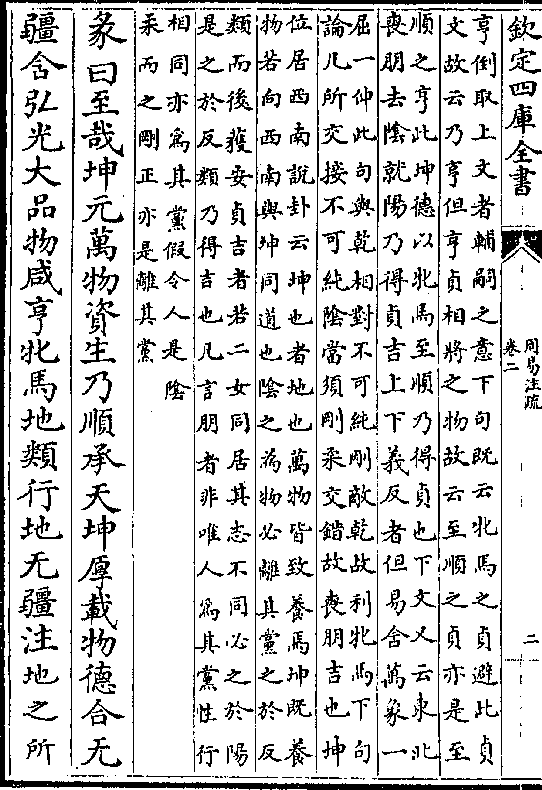 欽定四庫全書
周易注疏
卷二
二
亨倒取上文者輔嗣之意下句既云牝馬之貞避此貞
文故云乃亨但亨貞相將之物故云至順之貞亦是至
順之亨此坤德以牝馬至順乃得貞也下文又云東北
喪朋去陰就陽乃得貞吉上下義反者但易含萬象一
屈一伸此句與乾相對不可純剛敵乾故利牝馬下句
論凡所交接不可純陰當須剛柔交錯故喪朋吉也坤
位居西南說卦云坤也者地也萬物皆致養焉坤既養
物若向西南與坤同道也陰之為物必離其黨之於反
類而後獲安貞吉者若二女同居其志不同必之於陽
是之於反類乃得吉也凡言朋者非唯人為其黨性行
相同亦為其黨假令人是陰
柔而之剛正亦是離其黨
彖曰至哉坤元萬物資生乃順承天坤厚載物德合无
疆含弘光大品物咸亨牝馬地類行地无疆注地之所